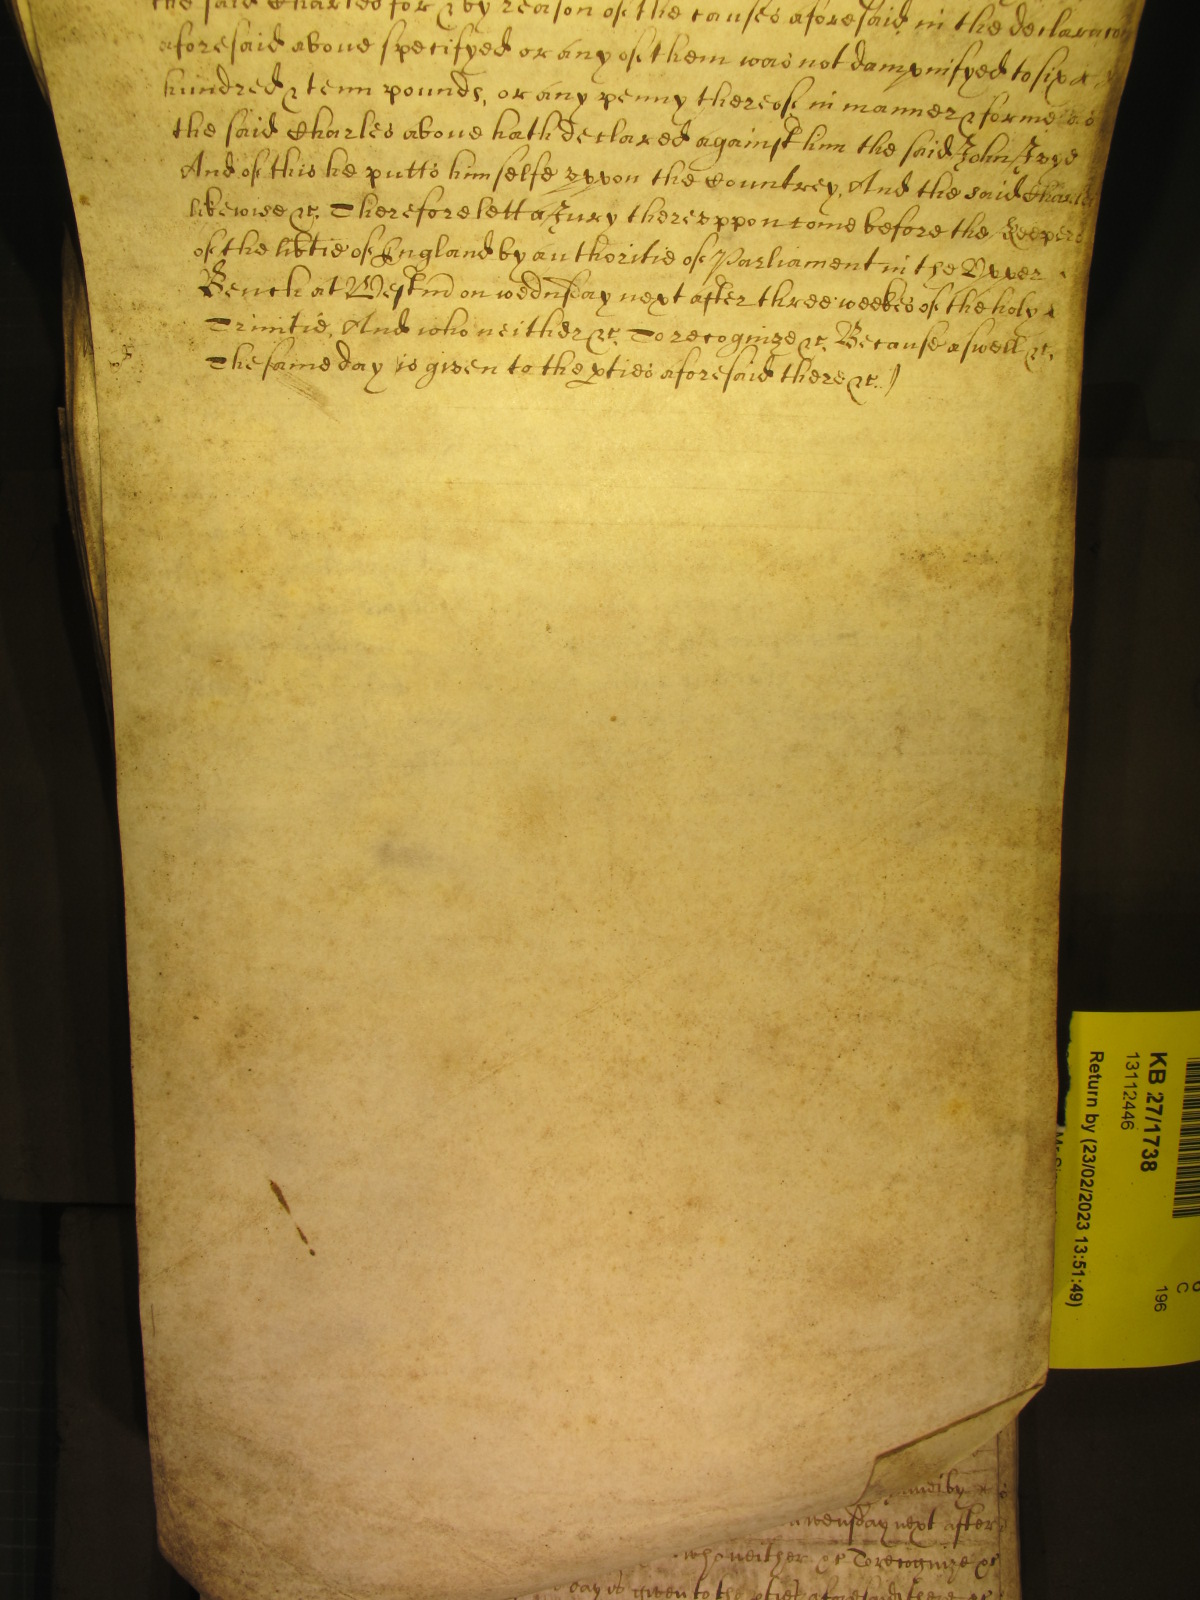 the said Charles for & by reason of the causes aforesaid in the declaracon
aforesaid aboue specifyed or any of them was not dampnifyed to six
hundred & tenn pounds, or any penny thereof in manner & forme as
the said Charles aboue hath declared against him the said John
And of this he putts himselfe vppon the Countrey, And the said Charles
likewise &c. Therefore lett a Jury therevppon come before the Keepers
of the libtie of England by authoritie of Parliament in the Vpper
Bench at Westm on wednsday next after three weekes of the holy
Trinitie, And who neither &c. To recognize &c. Because aswell &c.
The same day is given to the pties aforesaid there &c.
KB 27/1738
13112446
Return by (23/02/2023 13:51:49)
196
C
wensday next after
who neither &c To recognize &c
day is given to the pties aforesaid there &c